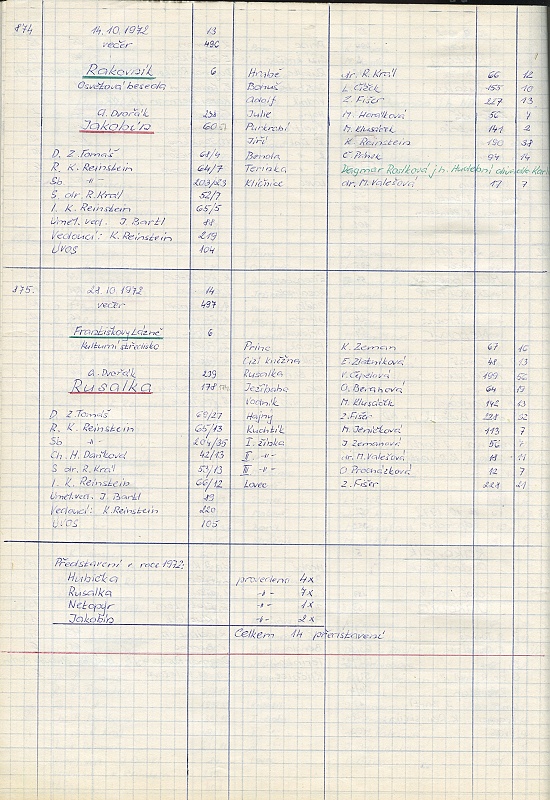 874 14.10.1972 13
večer 496
Rakovník 6 Hrabě dr. R. Král 66 12
Osvětová beseda Bohuš L. Čížek 155 10
Adolf Z. Fišer 227 13
A. Dvořák 238 Julie M. Horátková 56 7
Jakobín 60 Purkrabí M. Klusáček 141 2
Jiří K. Reinstein 190 37
D. Z. Tomáš 68/4 Benda Č. Pánek 94 14
R. K. Reinstein 64/7 Terinka Dagmar Rodková j.h. Hudební divadlo Karlín
Sb -"- 203/23 Klíčnice dr. M. Valešová 17 7
S dr. R. Král 52/7
I. K. Reinstein 65/5
Uměl. ved. J. Bartl 18
Vedoucí: K. Reinstein 219
ÚVOS 104
875. 28.10.1972 14
večer 497
Františkovy Lázně 6
Kulturní středisko Princ K. Zeman 67 16
Cizí kněžna E. Zlatníková 48 13
A. Dvořák 239 Rusalka V. Čepelová 199 56
Rusalka 178 Ježibaba O. Beranová 64 19
Vodník M. Klusáček 142 13
D Z. Tomáš 69/27 Hajný Z. Fišer 228 32
R. K. Reinstein 65/13 Kuchtík M. Jeníčková 113 7
Sb -"- 204/35 I. žínka J. Zemanová 56 7
Ch. H. Daríková 42/13 II -"- dr. M. Valešová 18 11
S dr. R. Král 53/13 III -"- O. Procházková 12 7
I. K. Reinstein 66/12 Lovec Z. Fišer 229 21
Uměl. ved. J. Bartl 19
Vedoucí: K. Reinstein 220
ÚVOS 105
Představení v roce 1972:
Hubička provedeno 4x
Rusalka -"- 7x
Netopýr -"- 1x
Jakobín -"- 2x
Celkem 14 představení